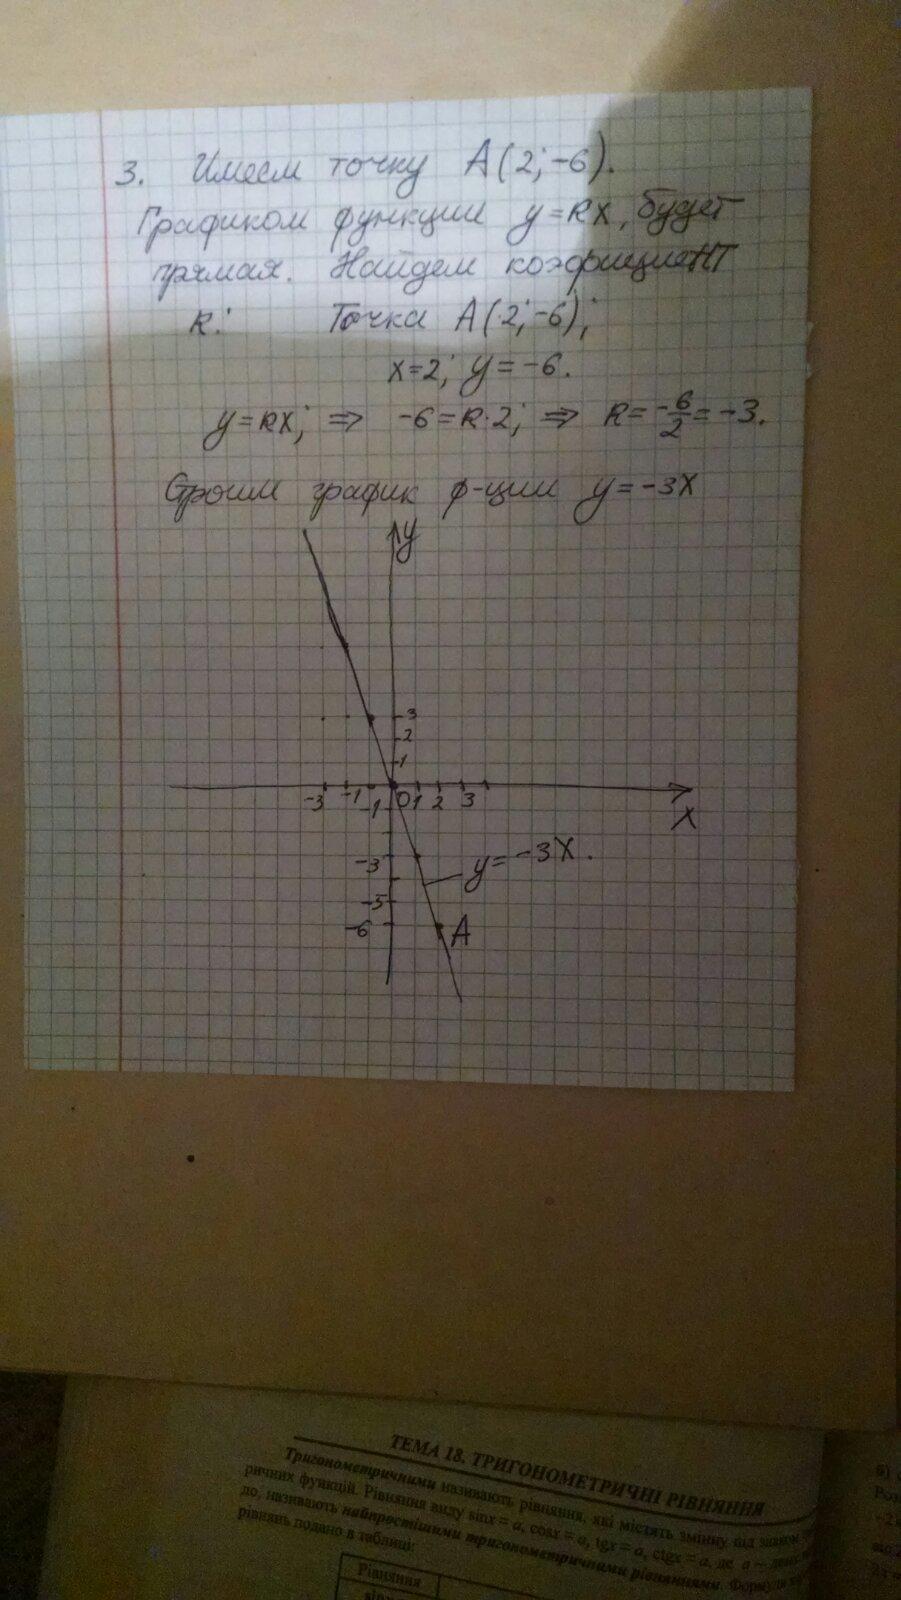 3. Имеем точку A(2; -6).
Графиком функции y=kx, будет
прямая. Найдем коэфициент
k: Точка A(2; -6);
x=2; y= -6.
y=kx; ⇒ -6=k·2; ⇒ k=-6/2=-3.
Строим график ф-ции y=-3x
y
3
2
1
-3 -1 0 1 2 3
-1
x
-3
y=-3x.
-5
-6 A
ТЕМА 18. ТРИГОНОМЕТРИЧНІ РІВНЯННЯ
Тригонометричними називають рівняння, які містять змінну під знаком
ричних функцій. Рівняння виду sinx = a, cosx = a, tgx = a, ctgx = a, де a –
до, називають найпростішими тригонометричними рівняннями. Формули
рівнянь подано в таблиці:
Рівняння